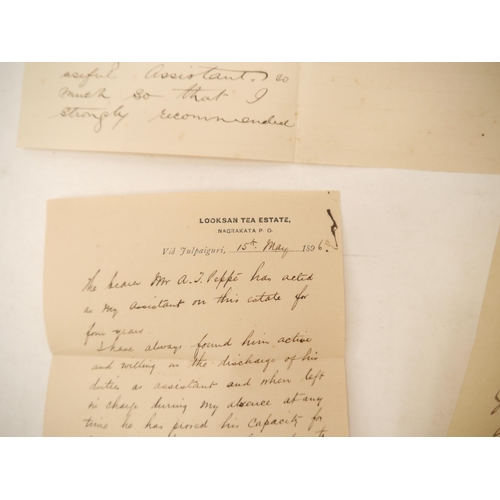 useful Assistant. so
much so that I
strongly recommended
LOOKSAN TEA ESTATE,
NAGRAKATA P. O.
Viâ Julpaiguri, 15th May 1896.
The bearer Mr A. T. Peppé has acted
as my assistant on this estate for
four years.
I have always found him active
and willing in the discharge of his
duties as assistant and when left
in charge during my absence at any
time he has proved his capacity for